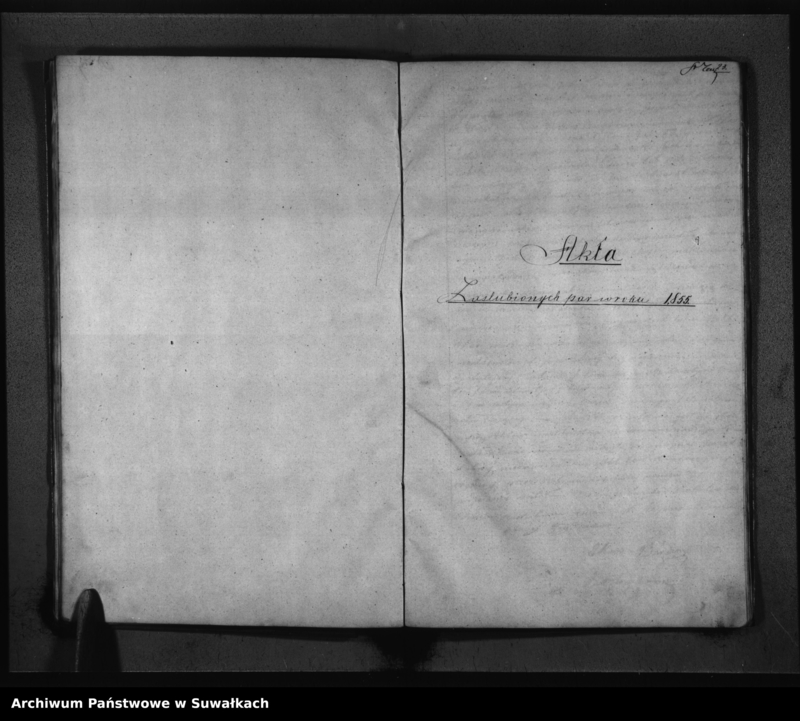 Akta
Zaslubionych par w roku 1855
Archiwum Państwowe w Suwałkach